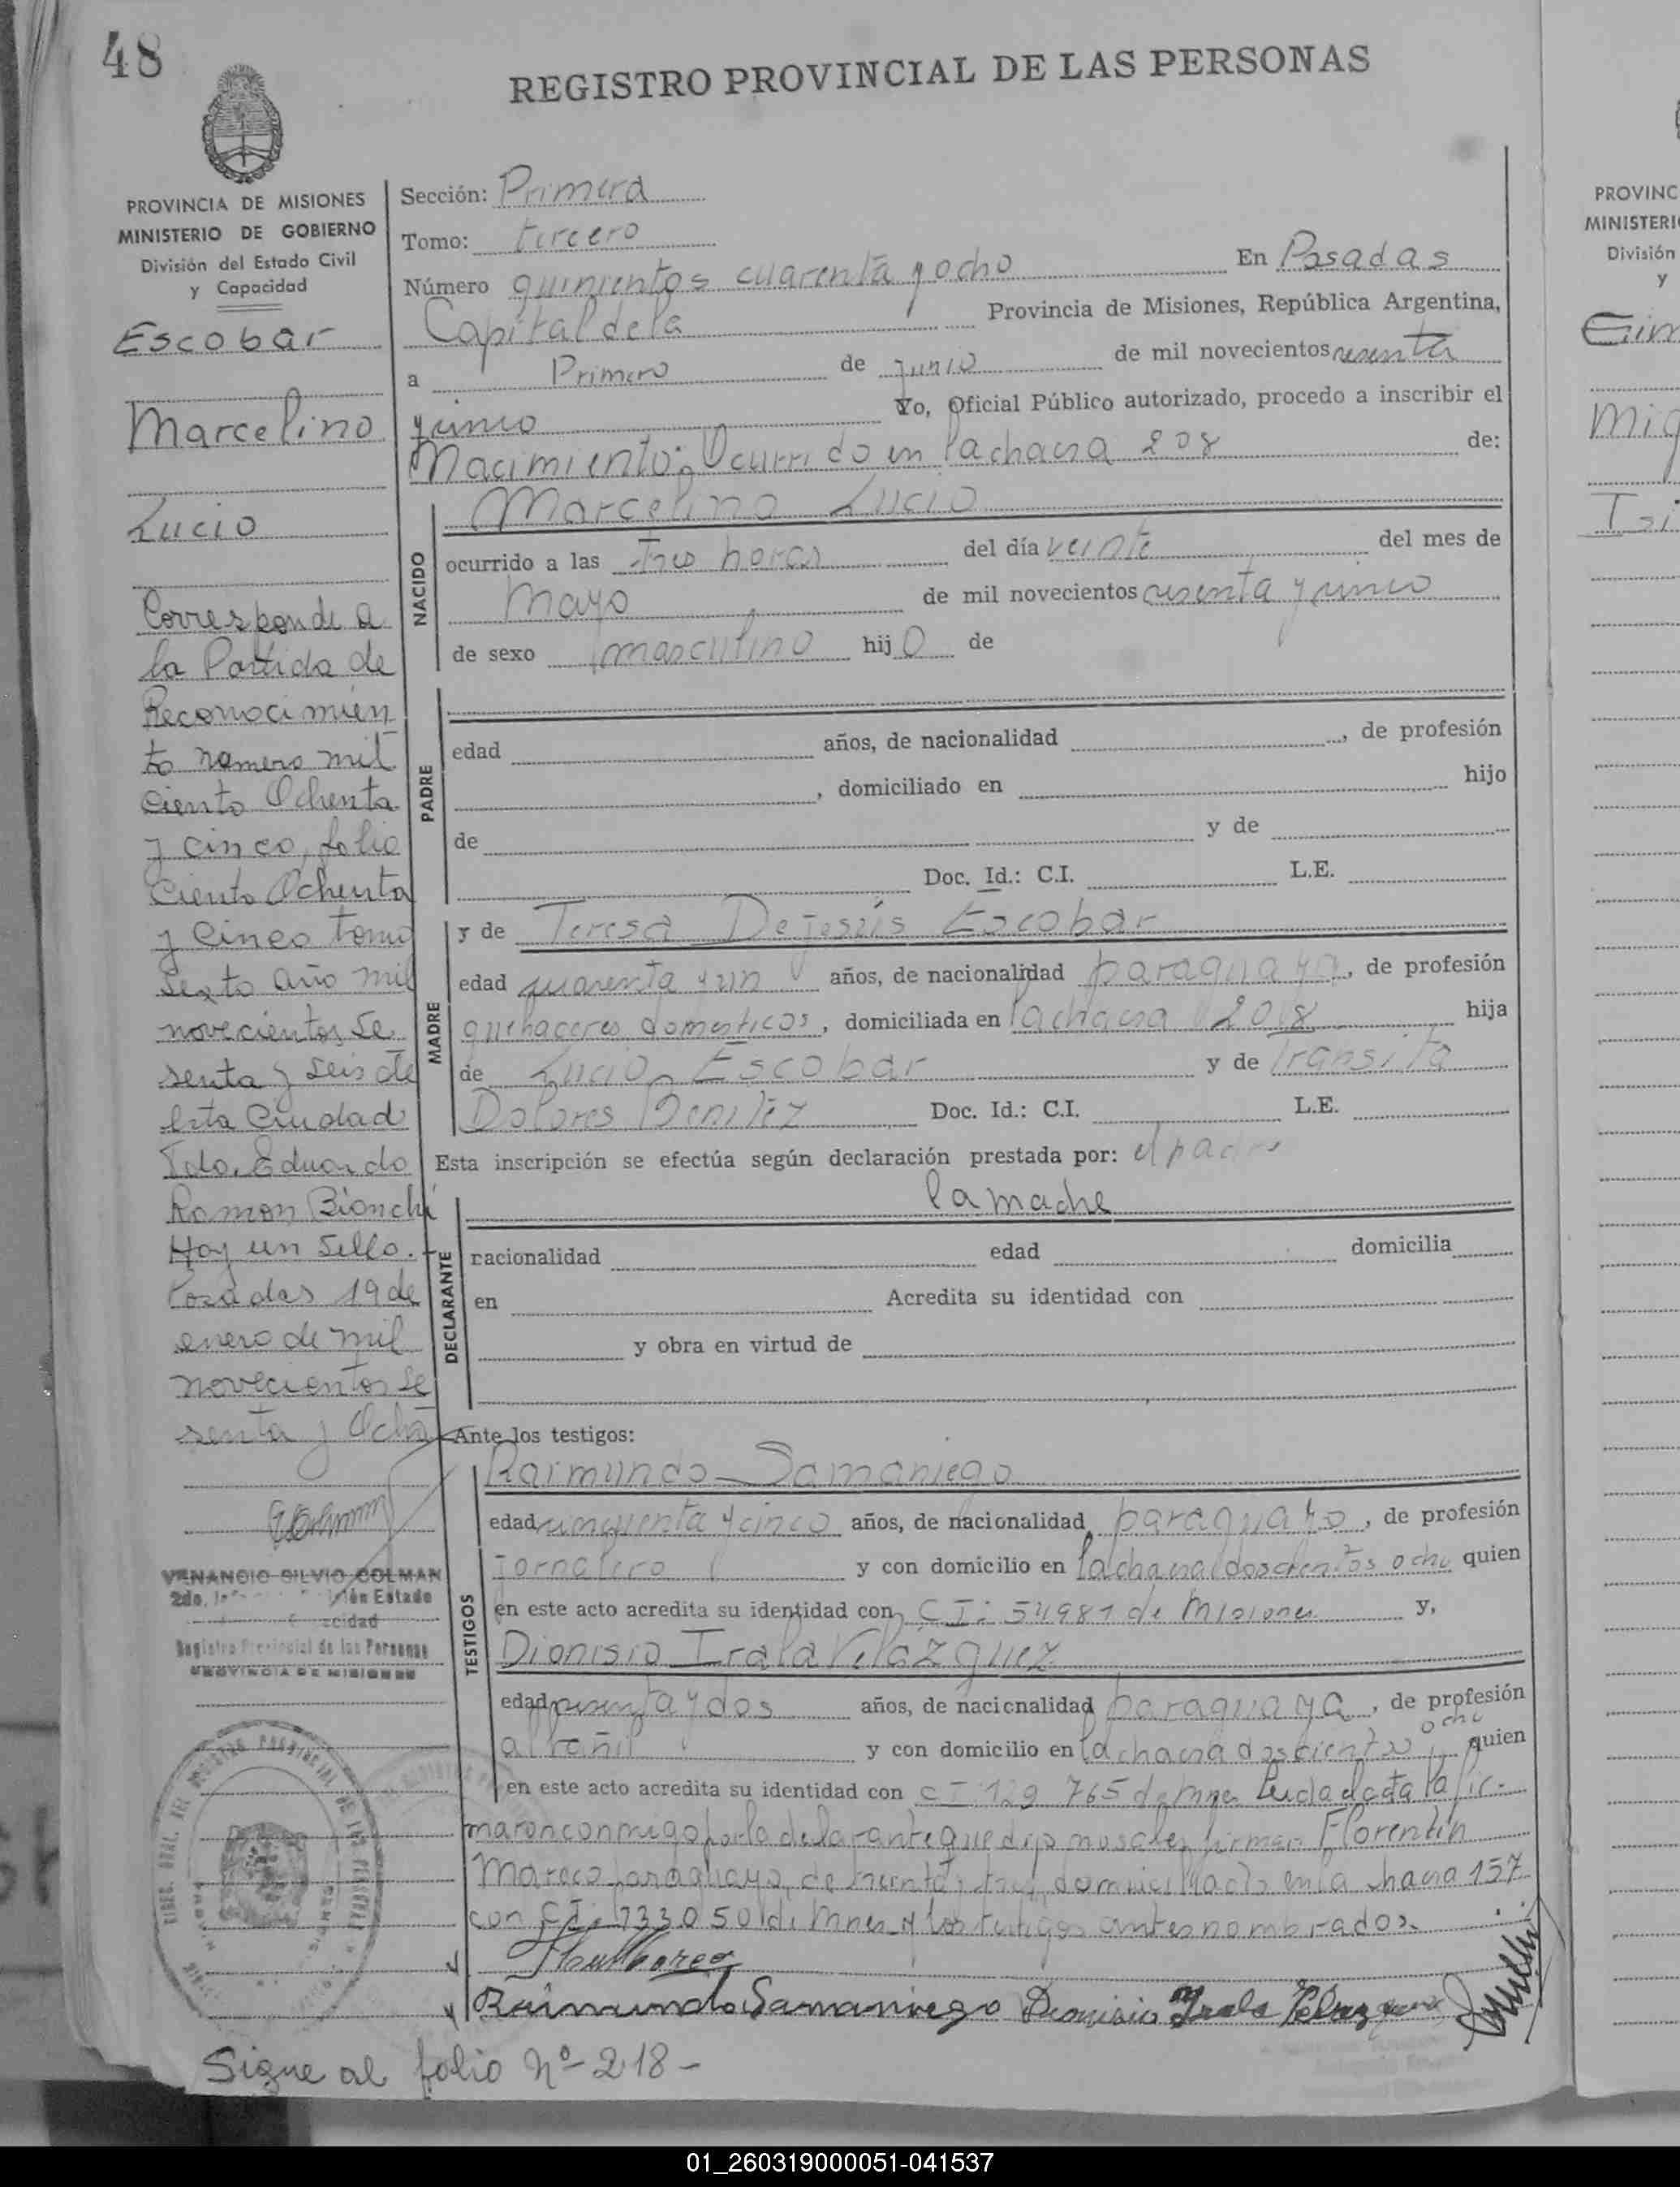 48
REGISTRO PROVINCIAL DE LAS PERSONAS
PROVINCIA DE MISIONES
MINISTERIO DE GOBIERNO
División del Estado Civil
y Capacidad
Escobar
Marcelino
Lucio
Corresponde a
la Partida de
Reconocimien
to numero mil
ciento Ochenta
y cinco, folio
Ciento Ochenta
y Cinco tomo
Sexto año mil
novecientos Se
senta y Seis de
esta Ciudad
Fdo. Eduardo
Ramon Bianchi
Hay un Sello. -
Posadas 19 de
enero de mil
novecientos Se
senta y Ocho
VENANCIO SILVIO COLMAN
2do. Estado
cidad
Registro Provincial de las Personas
PROVINCIA DE MISIONES
Sección: Primera
Tomo: tercero
Número quinientos cuarenta y ocho En Posadas
Capital de la Provincia de Misiones, República Argentina,
a Primero de junio de mil novecientos sesenta
y cinco Yo, Oficial Público autorizado, procedo a inscribir el
Nacimiento: Ocurrido en la chacra 208 de:
NACIDO
Marcelino Lucio
ocurrido a las tres horas del día veinte del mes de
Mayo de mil novecientos sesenta y cinco
de sexo masculino hijo de
PADRE
edad años, de nacionalidad , de profesión
, domiciliado en hijo
de y de
Doc. Id.: C.I. L.E.
MADRE
y de Teresa De Jesús Escobar
edad cuarenta y un años, de nacionalidad paraguaya, de profesión
quehaceres domesticos, domiciliada en la chacra 208 hija
de Lucio Escobar y de Transita
Dolores Benitez Doc. Id.: C.I. L.E.
Esta inscripción se efectúa según declaración prestada por: el padre
DECLARANTE
la madre
nacionalidad edad domicilia
en Acredita su identidad con
y obra en virtud de
Ante los testigos:
TESTIGOS
Raimundo Samaniego
edad cincuenta y cinco años, de nacionalidad paraguayo, de profesión
Jornalero y con domicilio en la chacra doscientos ocho quien
en este acto acredita su identidad con C I: 54981 de Misiones y,
Dionisio Irala Velazquez
edad treinta y dos años, de nacionalidad paraguaya, de profesión
albañil y con domicilio en la chacra doscientos ocho quien
en este acto acredita su identidad con C I 129 765 de Mnes Leida el acta la fir-
maron conmigo por la declarante que dijo no saber firmar Florentin
Mareco paraguayo, de treinta y tres, domiciliado en la chacra 157
con C I. 133050 de Mnes y los testigos antes nombrados.
Raimundo Samaniego Dionisio Irala Velazquez
Sigue al folio Nº 218 -
PROVINC
MINISTERI
División
y
01_260319000051-041537